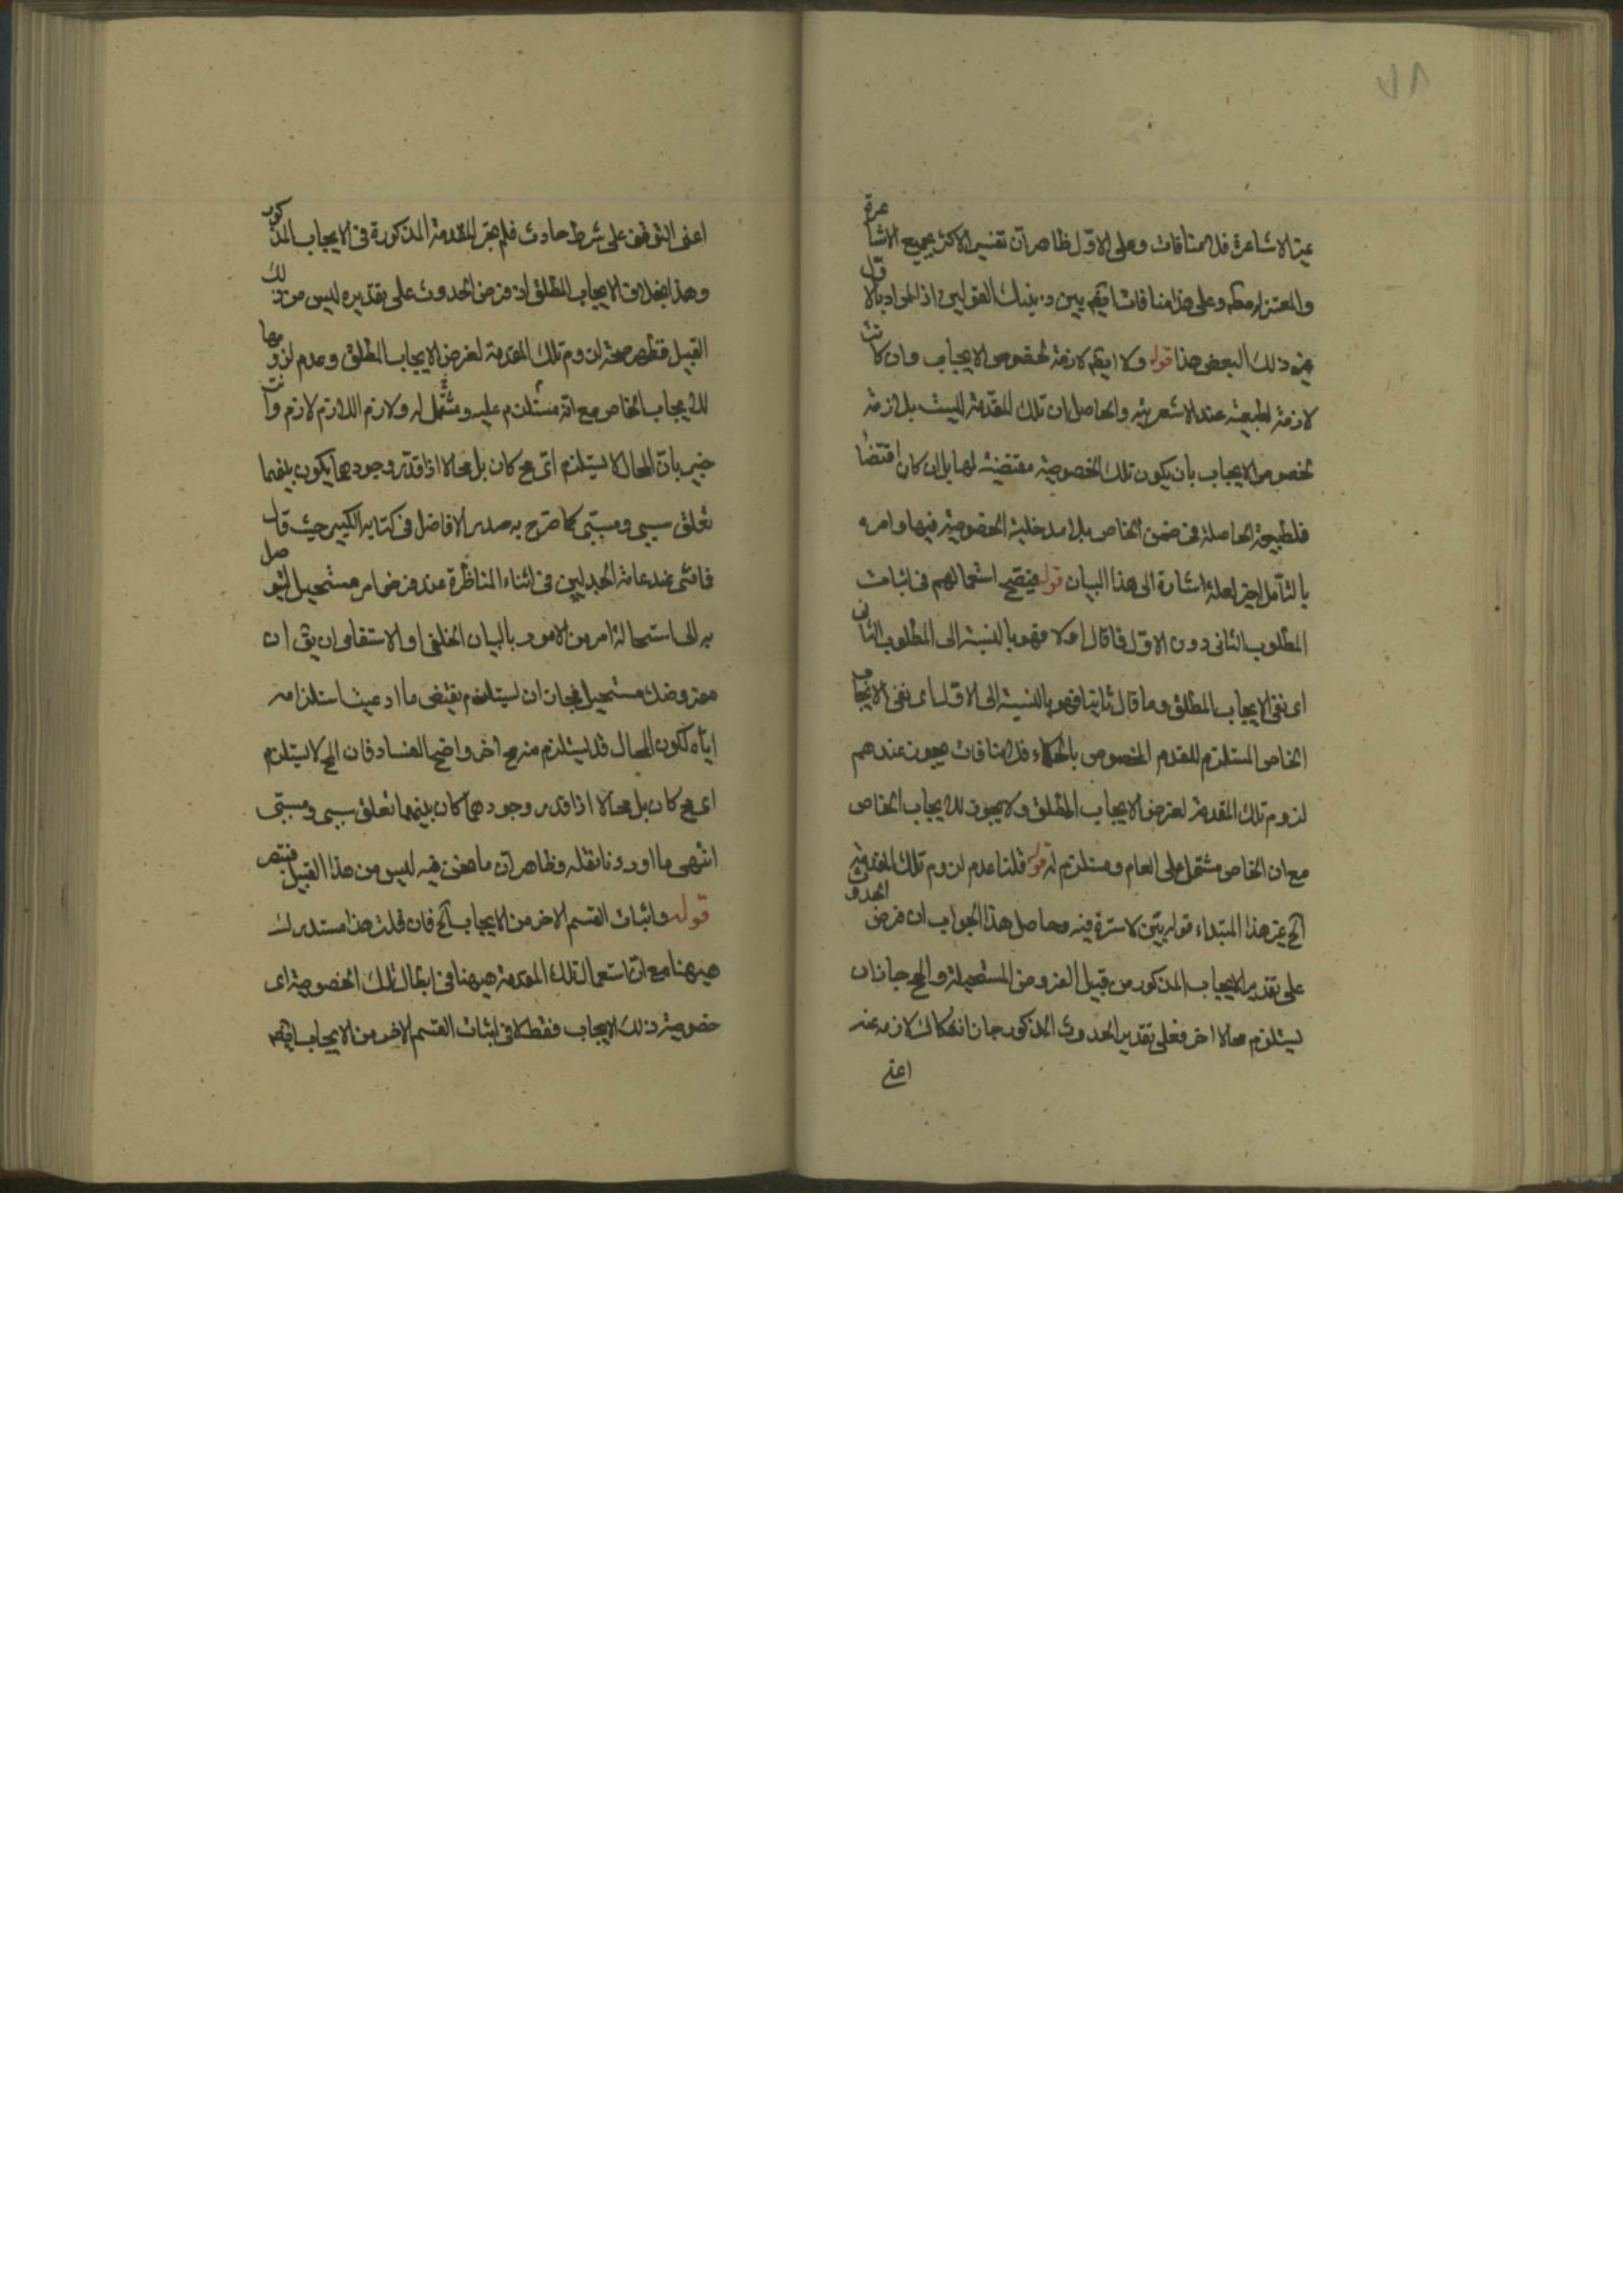 ٧٨
غير الاشاعرة فلا منافات وعلى الاول ظاهر ان تفسير الاكثر بجميع الاشاعرة
والمعتزلة وعلى هذا منافات ايضا بين ذينك القولين اذ المراد بالاول
غير ذلك البعض هذا قوله ولا ايضا لازمة لخصوص الايجاب وان كانت
لازمة لطبيعته عند الاشعرية والحاصل ان تلك المقدمة ليست بلازمة
لخصوص الايجاب بان يكون تلك الخصوصية مقتضية لها بل ان كان اقتضا
فلطبيعة الحاصلة في ضمن الخاص بلا مدخلية الخصوصية فيها وامره
بالتأمل لعله اشارة الى هذا البيان قوله فيصح استعمالهم في اثبات
المطلوب الثاني دون الاول فما قال اولا فهو بالنسبة الى المطلوب الثاني
اى نفى الايجاب المطلق وما قال ثانيا فهو بالنسبة الى الاول اى نفى الايجاب
الخاص المستلزم للقدم المخصوص بالحكماء فلا منافات يجوز عندهم
لزوم تلك المقدمة لفرض الايجاب المطلق ولا يجوز للايجاب الخاص
مع ان الخاص مشتمل على العام ومستلزم له قوله قلنا عدم لزوم تلك المقدمة
الخ هذا المبتداء قوله بين لاسترة فيه وحاصل هذا الجواب ان فرض الحدوث
على تقدير الايجاب المذكور من قبيل الفروض المستحيلة والمح جاز ان
يستلزم محالا اخر فعلى تقدير الحدوث المذكور جاز انفكاك لازمه عنه
اعنى
اعنى التوقف على شرط حادث فلم يجر المقدمة المذكورة في الايجاب المذكور
وهذا بخلاف الايجاب المطلق اذ فرض الحدوث على تقديره ليس من ذلك
القبيل فظهر صحة لزوم تلك المقدمة لفرض الايجاب المطلق وعدم لزومها
للايجاب الخاص مع انه مستلزم عليه ومشتمل له ولازم اللازم لازم وانت
خبير بان المحال لا يستلزم اى مح كان بل محالا اذا قدر وجودهما يكون بينهما
تعلق سببى ومسببى كما صرح به صدر الافاضل في كتابه الكبير حيث قال
فما فشى عند عامة الجدليين في اثناء المناظرة عند فرض امر مستحيل ليتوصل
به الى استحالة امر من الامور بالبيان الخلفى او الاستقامى ان يق ان
مفروضك مستحيل فجاز ان يستلزم نقيض ما ادعيت استلزامه
اياه لكون المحال قد يستلزم منه مح اخر واضح الفساد فان المح لا يستلزم
اى مح كان بل محالا اذا قدر وجودهما كان بينهما تعلق سببى ومسببى
انتهى ما اوردنا نقله وظاهر ان ما نحن فيه ليس من هذا القبيل فتبصر
قوله واثبات القسم الاخر من الايجاب الخ فان قلت هذا مستدرك
هيهنا مع ان استعمال تلك المقدمة هيهنا في ابطال تلك الخصوصية اى
خصوصية ذلك الايجاب فقط لا في اثبات القسم الاخر من الايجاب ايضا